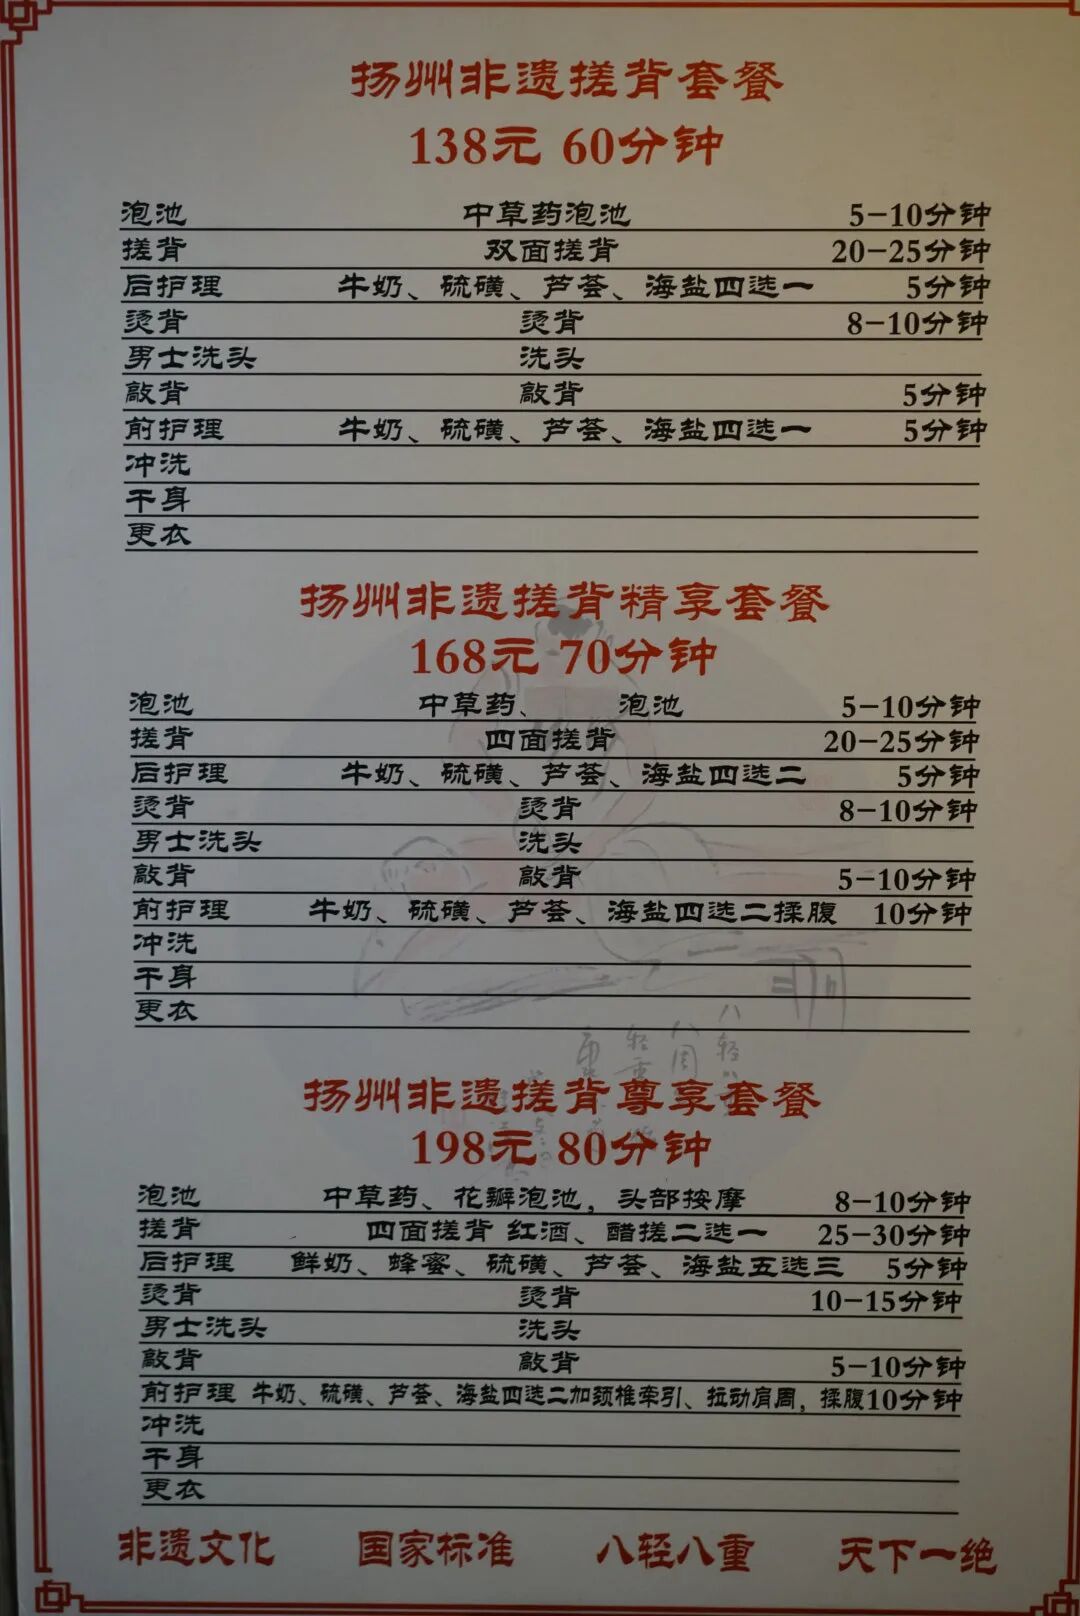 扬州非遗搓背套餐
138元 60分钟
泡池 中草药泡池 5-10分钟
搓背 双面搓背 20-25分钟
后护理 牛奶、硫磺、芦荟、海盐四选一 5分钟
烫背 烫背 8-10分钟
男士洗头 洗头
敲背 敲背 5分钟
前护理 牛奶、硫磺、芦荟、海盐四选一 5分钟
冲洗
干身
更衣
扬州非遗搓背精享套餐
168元 70分钟
泡池 中草药、 泡池 5-10分钟
搓背 四面搓背 20-25分钟
后护理 牛奶、硫磺、芦荟、海盐四选二 5分钟
烫背 烫背 8-10分钟
男士洗头 洗头
敲背 敲背 5-10分钟
前护理 牛奶、硫磺、芦荟、海盐四选二揉腹 10分钟
冲洗
干身
更衣
扬州非遗搓背尊享套餐
198元 80分钟
泡池 中草药、花瓣泡池，头部按摩 8-10分钟
搓背 四面搓背 红酒、醋搓二选一 25-30分钟
后护理 鲜奶、蜂蜜、硫磺、芦荟、海盐五选三 5分钟
烫背 烫背 10-15分钟
男士洗头 洗头
敲背 敲背 5-10分钟
前护理 牛奶、硫磺、芦荟、海盐四选二加颈椎牵引、拉动肩周，揉腹10分钟
冲洗
干身
更衣
非遗文化 国家标准 八轻八重 天下一绝